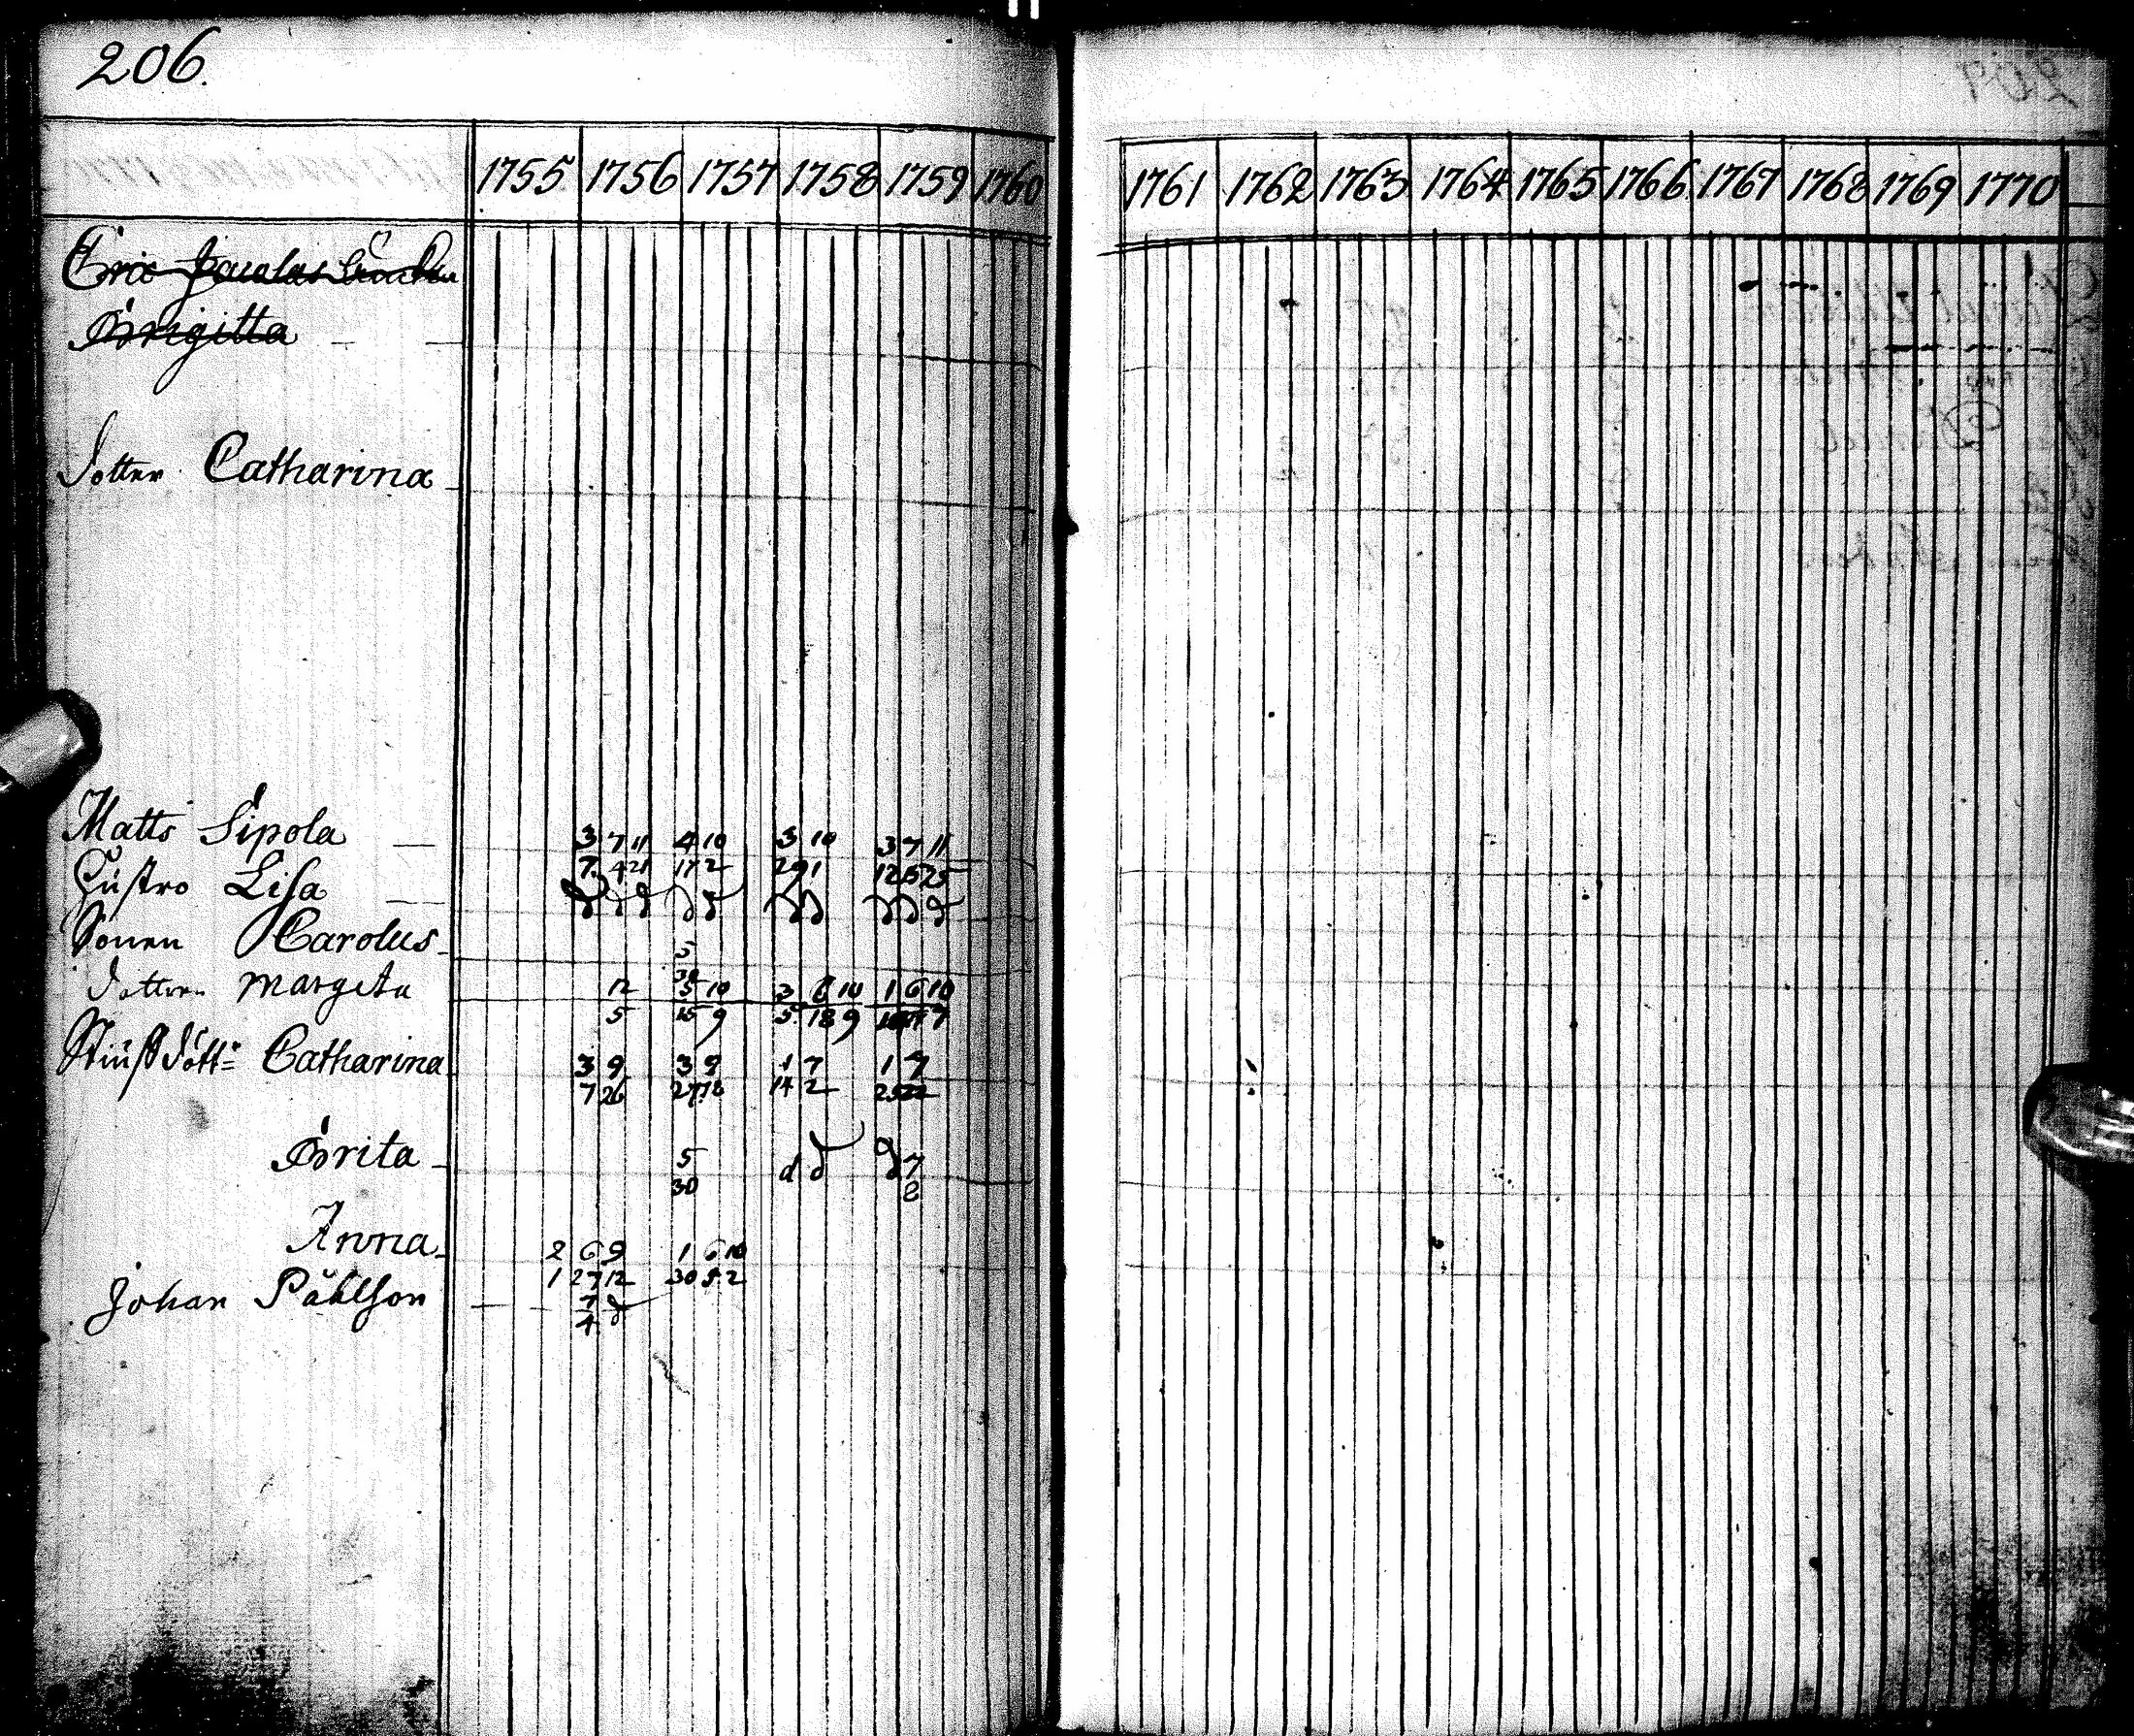 206.
1755 1756 1757 1758 1759 1760 1761 1762 1763 1764 1765 1766 1767 1768 1769 1770
Eric
Brigitta
dotter Catharina
Matts Sipola 3 7 11 4 10 3 10 3 7 11
7 4 21 17 2 29 1 12 25
Hustro Lisa
Sonen Carolus 5
30
dotter margeta 12 5 10 3 6 10 1 6 10
5 15 9 5 18 9 7
Stiufdött: Catharina 3 9 3 9 1 7 1 7
7 26 27 18 14 2 25 22
Brita 5 d d d 7
30 2
Anna 2 6 9 1 6 10
1 27 12 30 5 2
Johan Påhlson 7 d
4